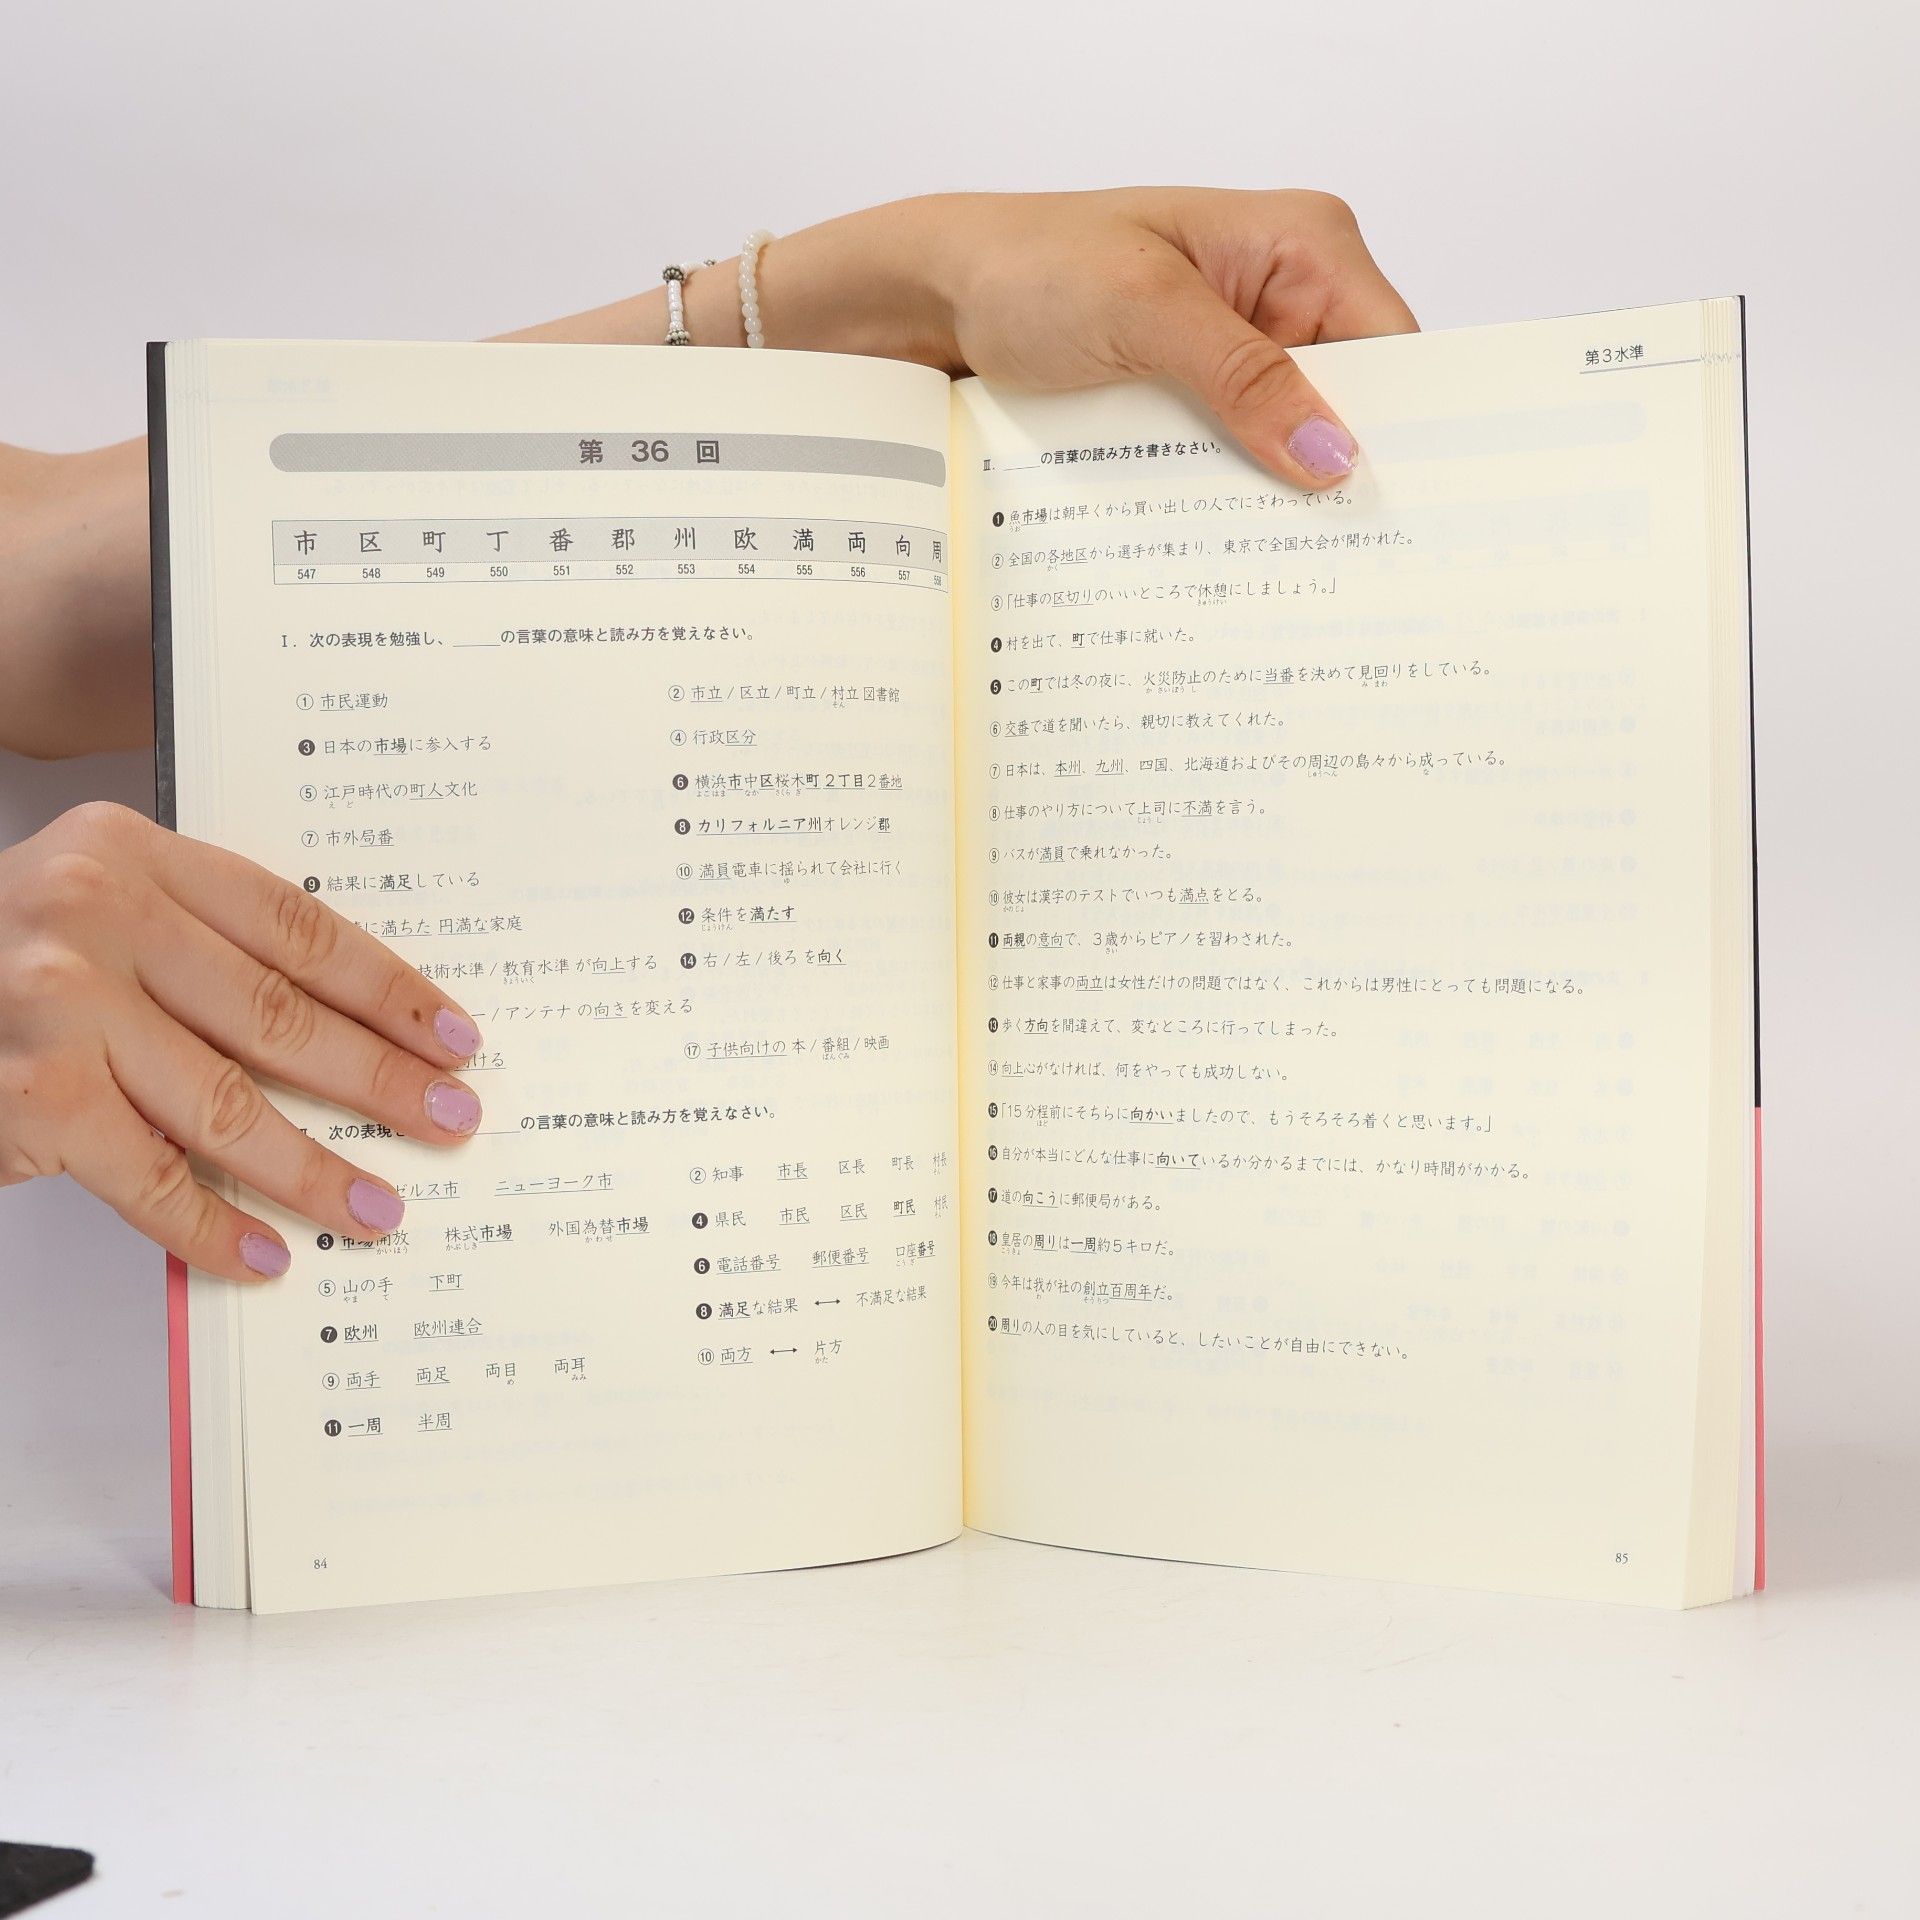 第 36 回
市 区 町 丁 番 郡 州 欧 満 両 向 周
547 548 549 550 551 552 553 554 555 556 557 558
Ⅰ. 次の表現を勉強し、_____の言葉の意味と読み方を覚えなさい。
① 市民運動
② 市立 / 区立 / 町立 / 村立 図書館
そん
❸ 日本の市場に参入する
④ 行政区分
⑤ 江戸時代の町人文化
え ど
❻ 横浜市中区桜木町2丁目2番地
よこはま なか さくら ぎ
⑦ 市外局番
❽ カリフォルニア州オレンジ郡
❾ 結果に満足している
⑩ 満員電車に揺られて会社に行く
ゆ
に満ちた 円満な家庭
⓬ 条件を満たす
じょうけん
技術水準 / 教育水準 が向上する
きょういく
⓮ 右 / 左 / 後ろ を向く
ー / アンテナ の向きを変える
ける
⑰ 子供向けの 本 / 番組 / 映画
ばんぐみ
Ⅱ. 次の表現を _____の言葉の意味と読み方を覚えなさい。
ゼルス市 ニューヨーク市
② 知事 市長 区長 町長 村長
そん
❸ 市場開放 株式市場 外国為替市場
かいほう かぶしき かわせ
❹ 県民 市民 区民 町民 村民
そん
⑤ 山の手 下町
やま て
❻ 電話番号 郵便番号 口座番号
こう ざ
❼ 欧州 欧州連合
❽ 満足な結果 ⟷ 不満足な結果
⑨ 両手 両足 両目 両耳
め みみ
⑩ 両方 ⟷ 片方
かた
⓫ 一周 半周
84
第3水準
Ⅲ. _____の言葉の読み方を書きなさい。
❶ 魚市場は朝早くから買い出しの人でにぎわっている。
うお
② 全国の各地区から選手が集まり、東京で全国大会が開かれた。
かく
③ 「仕事の区切りのいいところで休憩にしましょう。」
きゅうけい
❹ 村を出て、町で仕事に就いた。
❺ この町では冬の夜に、火災防止のために当番を決めて見回りをしている。
か さいぼう し み まわ
⑥ 交番で道を聞いたら、親切に教えてくれた。
⑦ 日本は、本州、九州、四国、北海道およびその周辺の島々から成っている。
しゅうへん な
⑧ 仕事のやり方について上司に不満を言う。
じょう し
⑨ バスが満員で乗れなかった。
⑩ 彼女は漢字のテストでいつも満点をとる。
かのじょ
⓫ 両親の意向で、3歳からピアノを習わされた。
さい
⑫ 仕事と家事の両立は女性だけの問題ではなく、これからは男性にとっても問題になる。
⓭ 歩く方向を間違えて、変なところに行ってしまった。
⑭ 向上心がなければ、何をやっても成功しない。
⓯ 「15分程前にそちらに向かいましたので、もうそろそろ着くと思います。」
ほど
⓰ 自分が本当にどんな仕事に向いているか分かるまでには、かなり時間がかかる。
⓱ 道の向こうに郵便局がある。
⓲ 皇居の周りは一周約5キロだ。
こうきょ
⑲ 今年は我が社の創立百周年だ。
わ そうりつ
⓴ 周りの人の目を気にしていると、したいことが自由にできない。
85